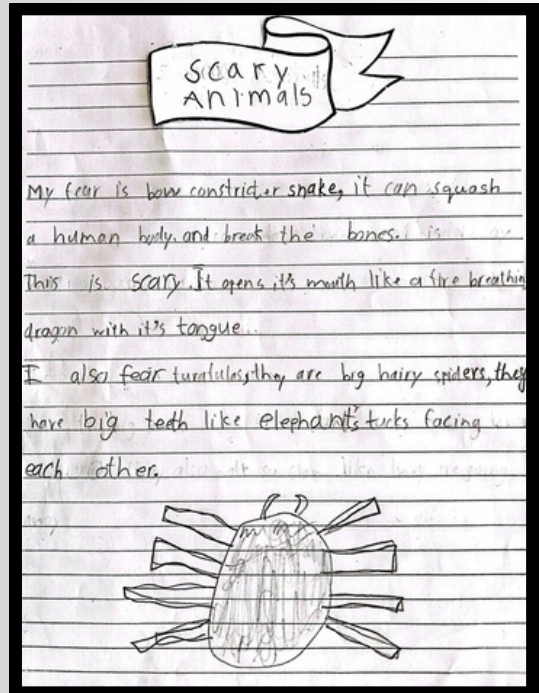 Scary
Animals
My fear is bow constricter snake, it can squash
a human body. and break the bones. is
This is scary. It opens it's mouth like a fire breathing
dragon with it's tongue.
I also fear turatulas, they are big hairy spiders, they
have big teeth like elephant's tucks facing
each other.